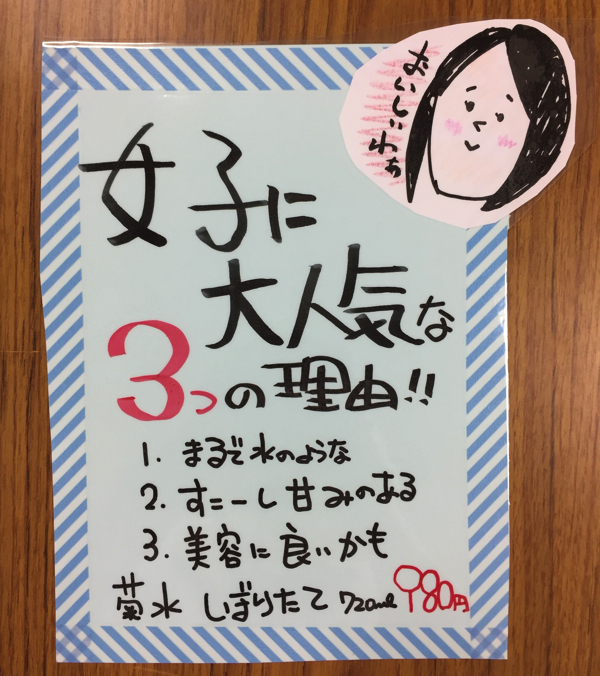 おいしいわぁ
女子に
大人気な
3つの理由!!
1. まるで水のような
2. すこーし甘みのある
3. 美容に良いかも
菊水 しぼりたて 720ml 980円